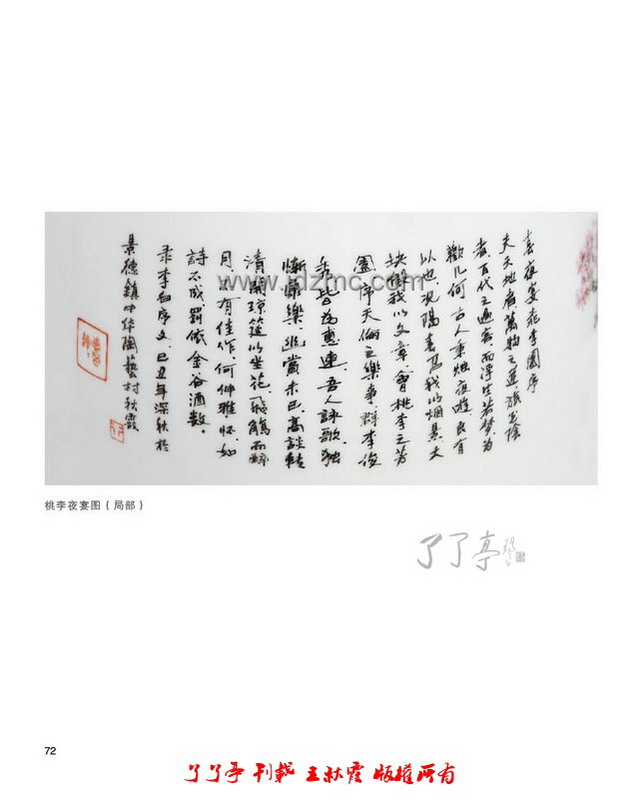 春夜宴桃李園序
夫天地者萬物之逆旅光陰
者百代之過客而浮生若梦為
歡几何古人秉燭夜遊良有
以也況陽春召我以烟景大
块假我以文章會桃李之芳
園序天倫之樂事群李俊
秀皆為惠連吾人詠歌独
慚康樂幽賞未已高談轉
清開琼筵以坐花飛觴而醉
月不有佳作何伸雅怀如
詩不成罰依金谷酒数。
录李白序文己丑年深秋於
景德鎮中华陶藝村秋霞
www.jdzmc.com
桃李夜宴图（局部）
了了亭
72
了了亭 刊載 王秋霞 版權所有